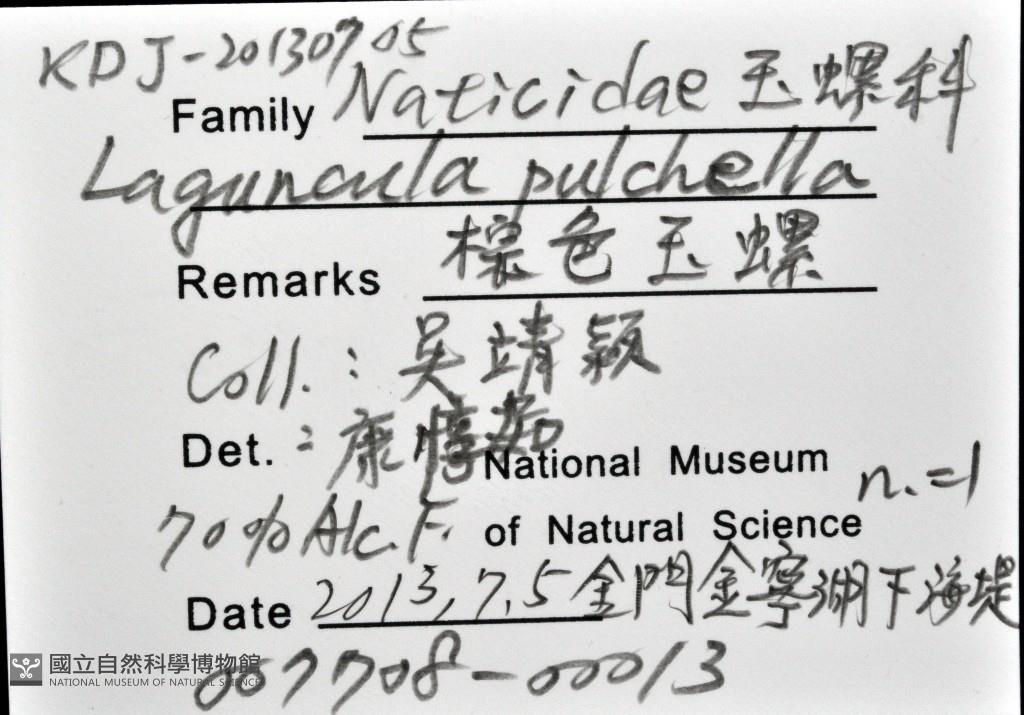 KDJ-20130705
Family Naticidae 玉螺科
Laguncula pulchella
Remarks 棕色玉螺
Coll.: 吳靖穎
Det.: 康惇茹
National Museum
n.=1
70% Alc.F.
of Natural Science
Date 2013,7,5 金門金寧湖下海堤
007708-00013
國立自然科學博物館
NATIONAL MUSEUM OF NATURAL SCIENCE